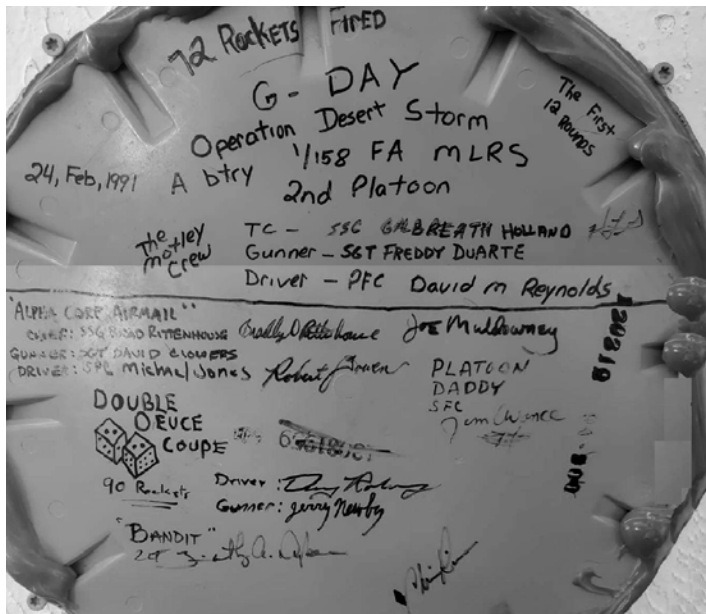 72 ROCKETS FIRED
G-DAY
Operation Desert Storm
The First
12 Rounds
24, Feb, 1991 A btry 1/158 FA MLRS
2nd Platoon
The
Motley
Crew
TC - SSG GILBREATH HOLLAND
Gunner - SGT FREDDY DUARTE
Driver - PFC David M Reynolds
"ALPHA CORP AIRMAIL"
CHIEF: SSG BRAD RITTENHOUSE Bradly D Rittenhouse Joe Muldowney
GUNNER: SGT DAVID CLOWERS
DRIVER: SPC Michael Jones Robert
PLATOON
DADDY
SFC
Jim
DOUBLE
DEUCE
COUPE
90 Rockets
Driver:
Gunner: Jerry Newby
"BANDIT"